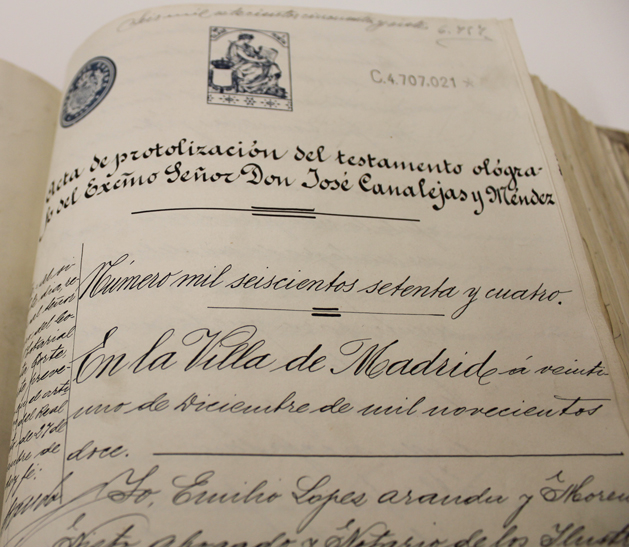 Seis mil setecientos cincuenta y siete 6.757
C.4.707.021
Acta de protolización del testamento ológra-
fo del Excmo Señor Don José Canalejas y Méndez
Número mil seiscientos setenta y cuatro.
En la Villa de Madrid á veinte
uno de Diciembre de mil novecientos
doce.
Yo, Emilio Lopez aranda y Moren
Nieto abogado y Notario de los Ilust